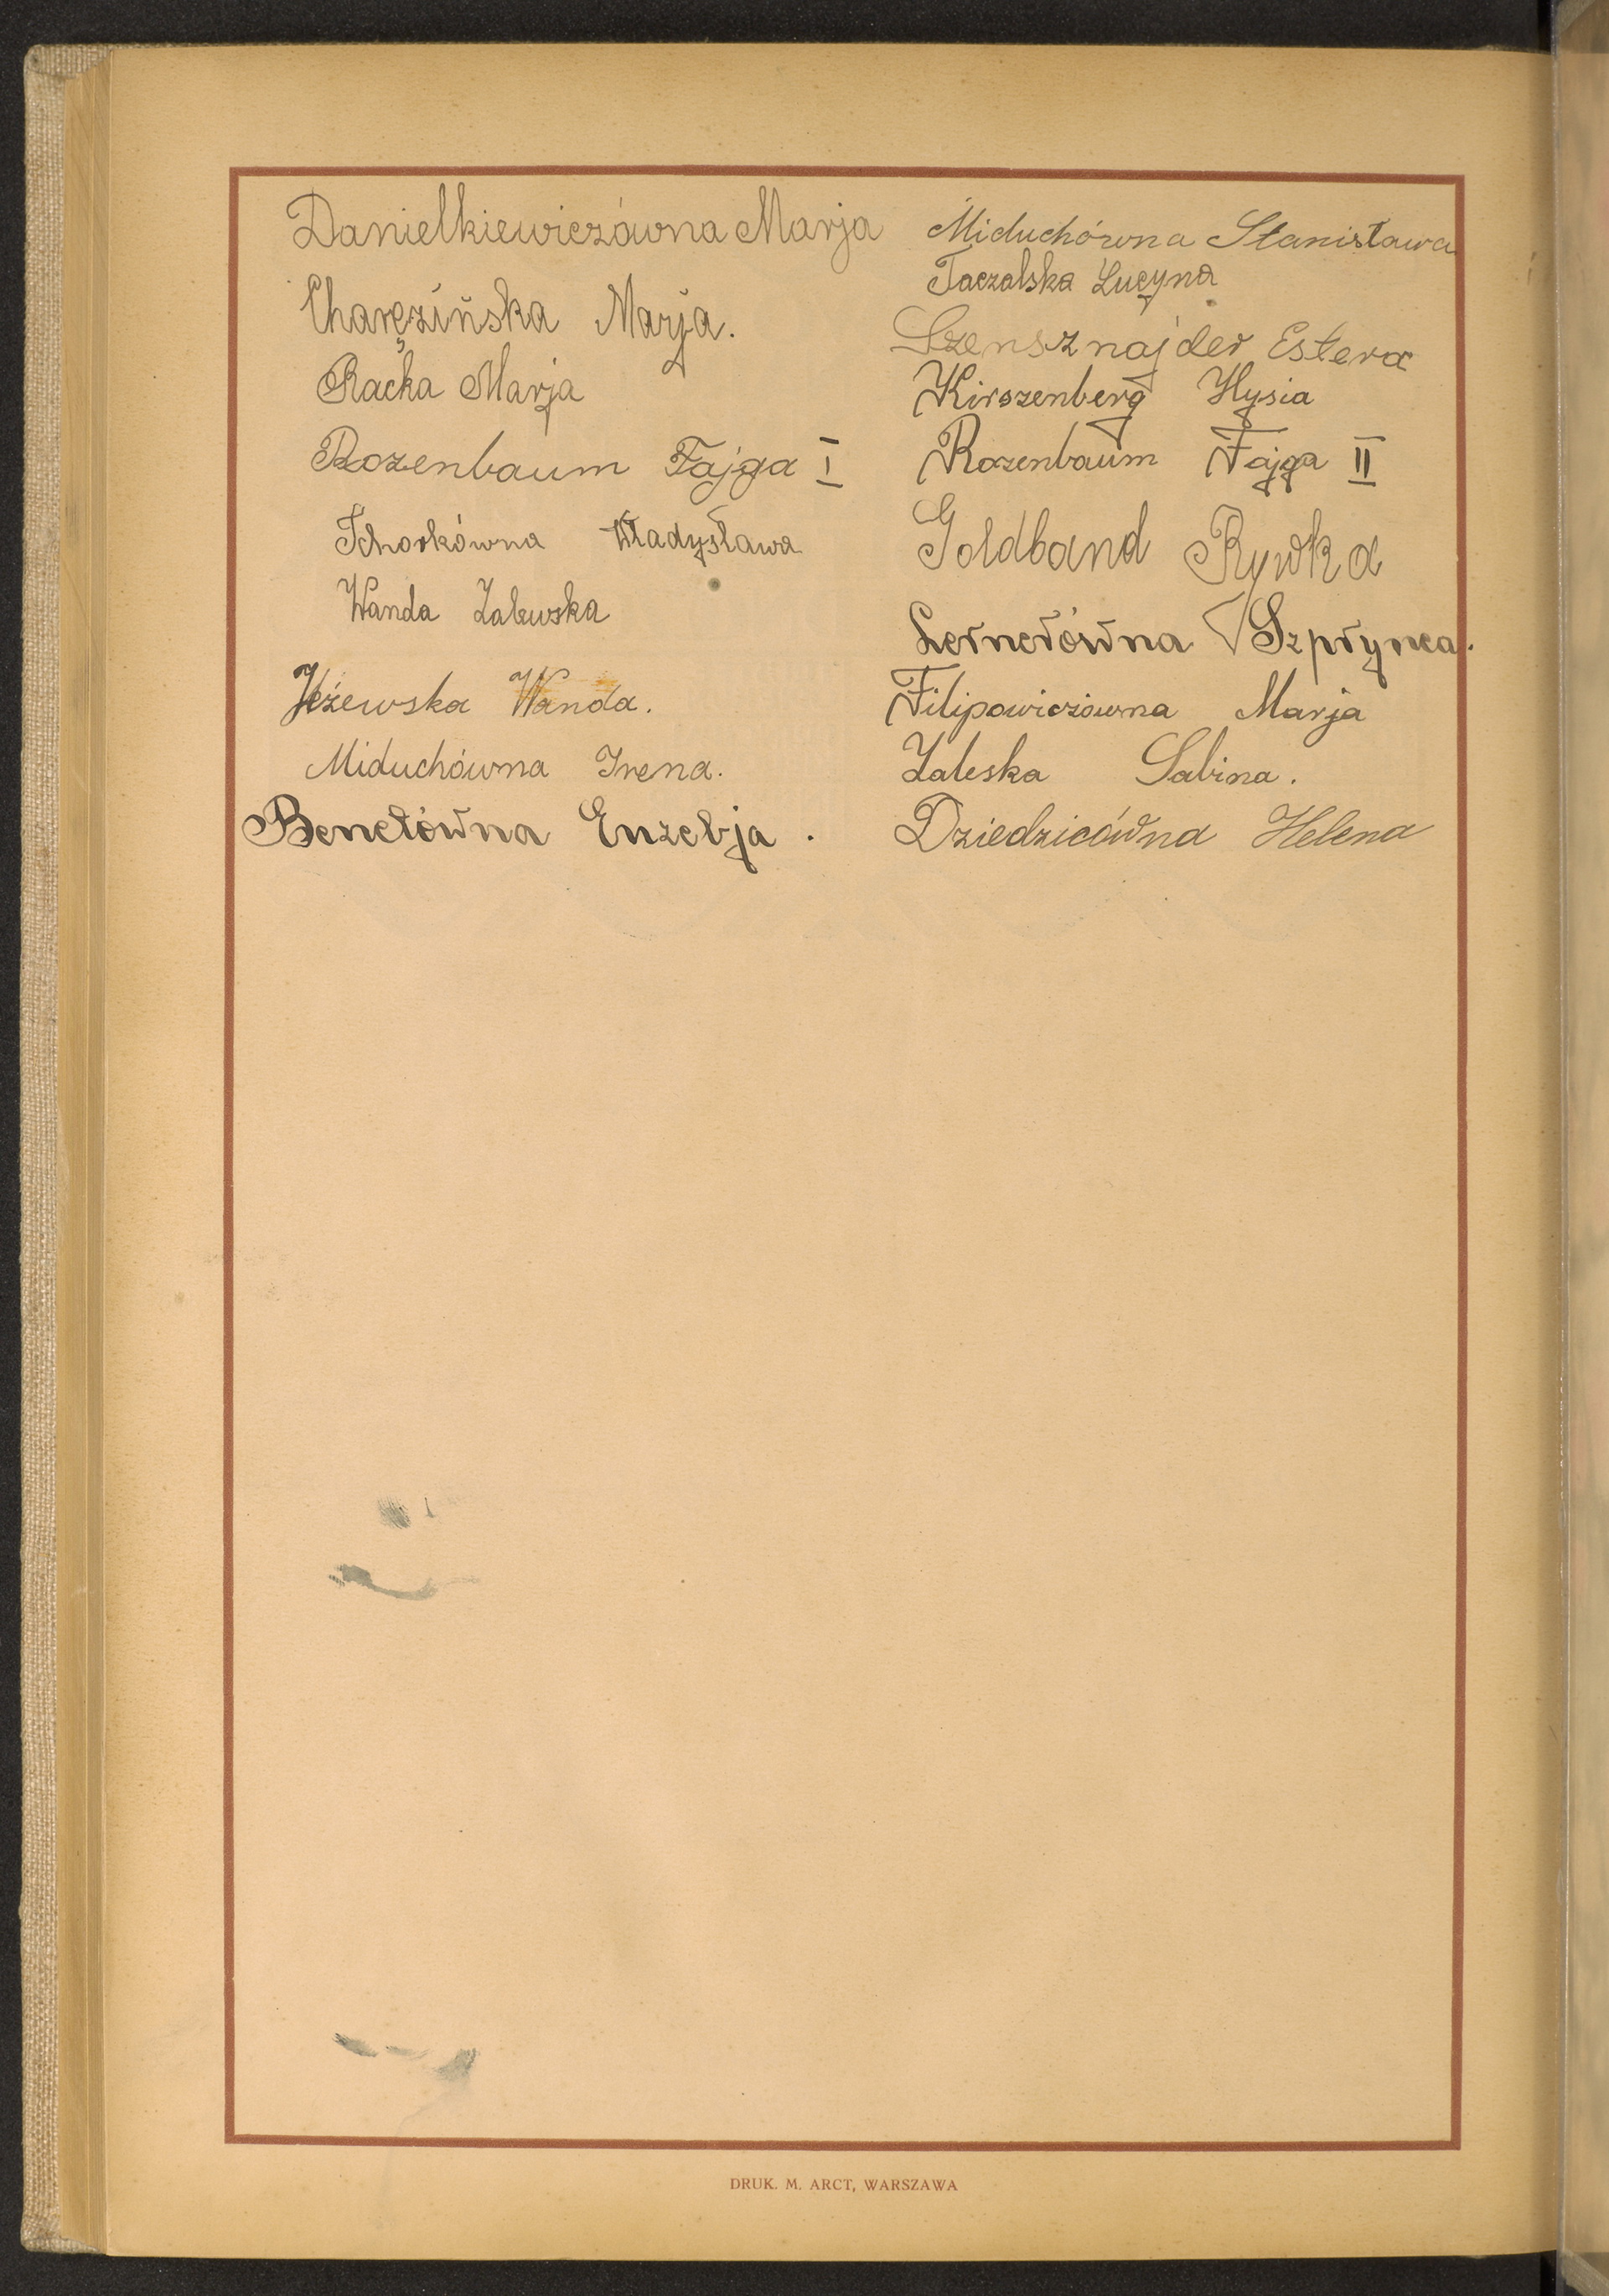 Danielkiewiczówna Marja
Charęzińska Marja.
Racka Marja
Rozenbaum Fajga I
Tchorkówna Władysława
Wanda Zalewska
Jeżewska Wanda.
Miduchówna Irena.
Benetówna Enzebja.
Miduchówna Stanisława
Taczalska Lucyna
Szensznajder Estera
Kirszenberg Hysia
Rozenbaum Fajga II
Goldband Rywka
Lernerówna Szprynca.
Filipowiczówna Marja
Zaleska Sabina.
Dziedzicówna Helena
DRUK. M. ARCT, WARSZAWA